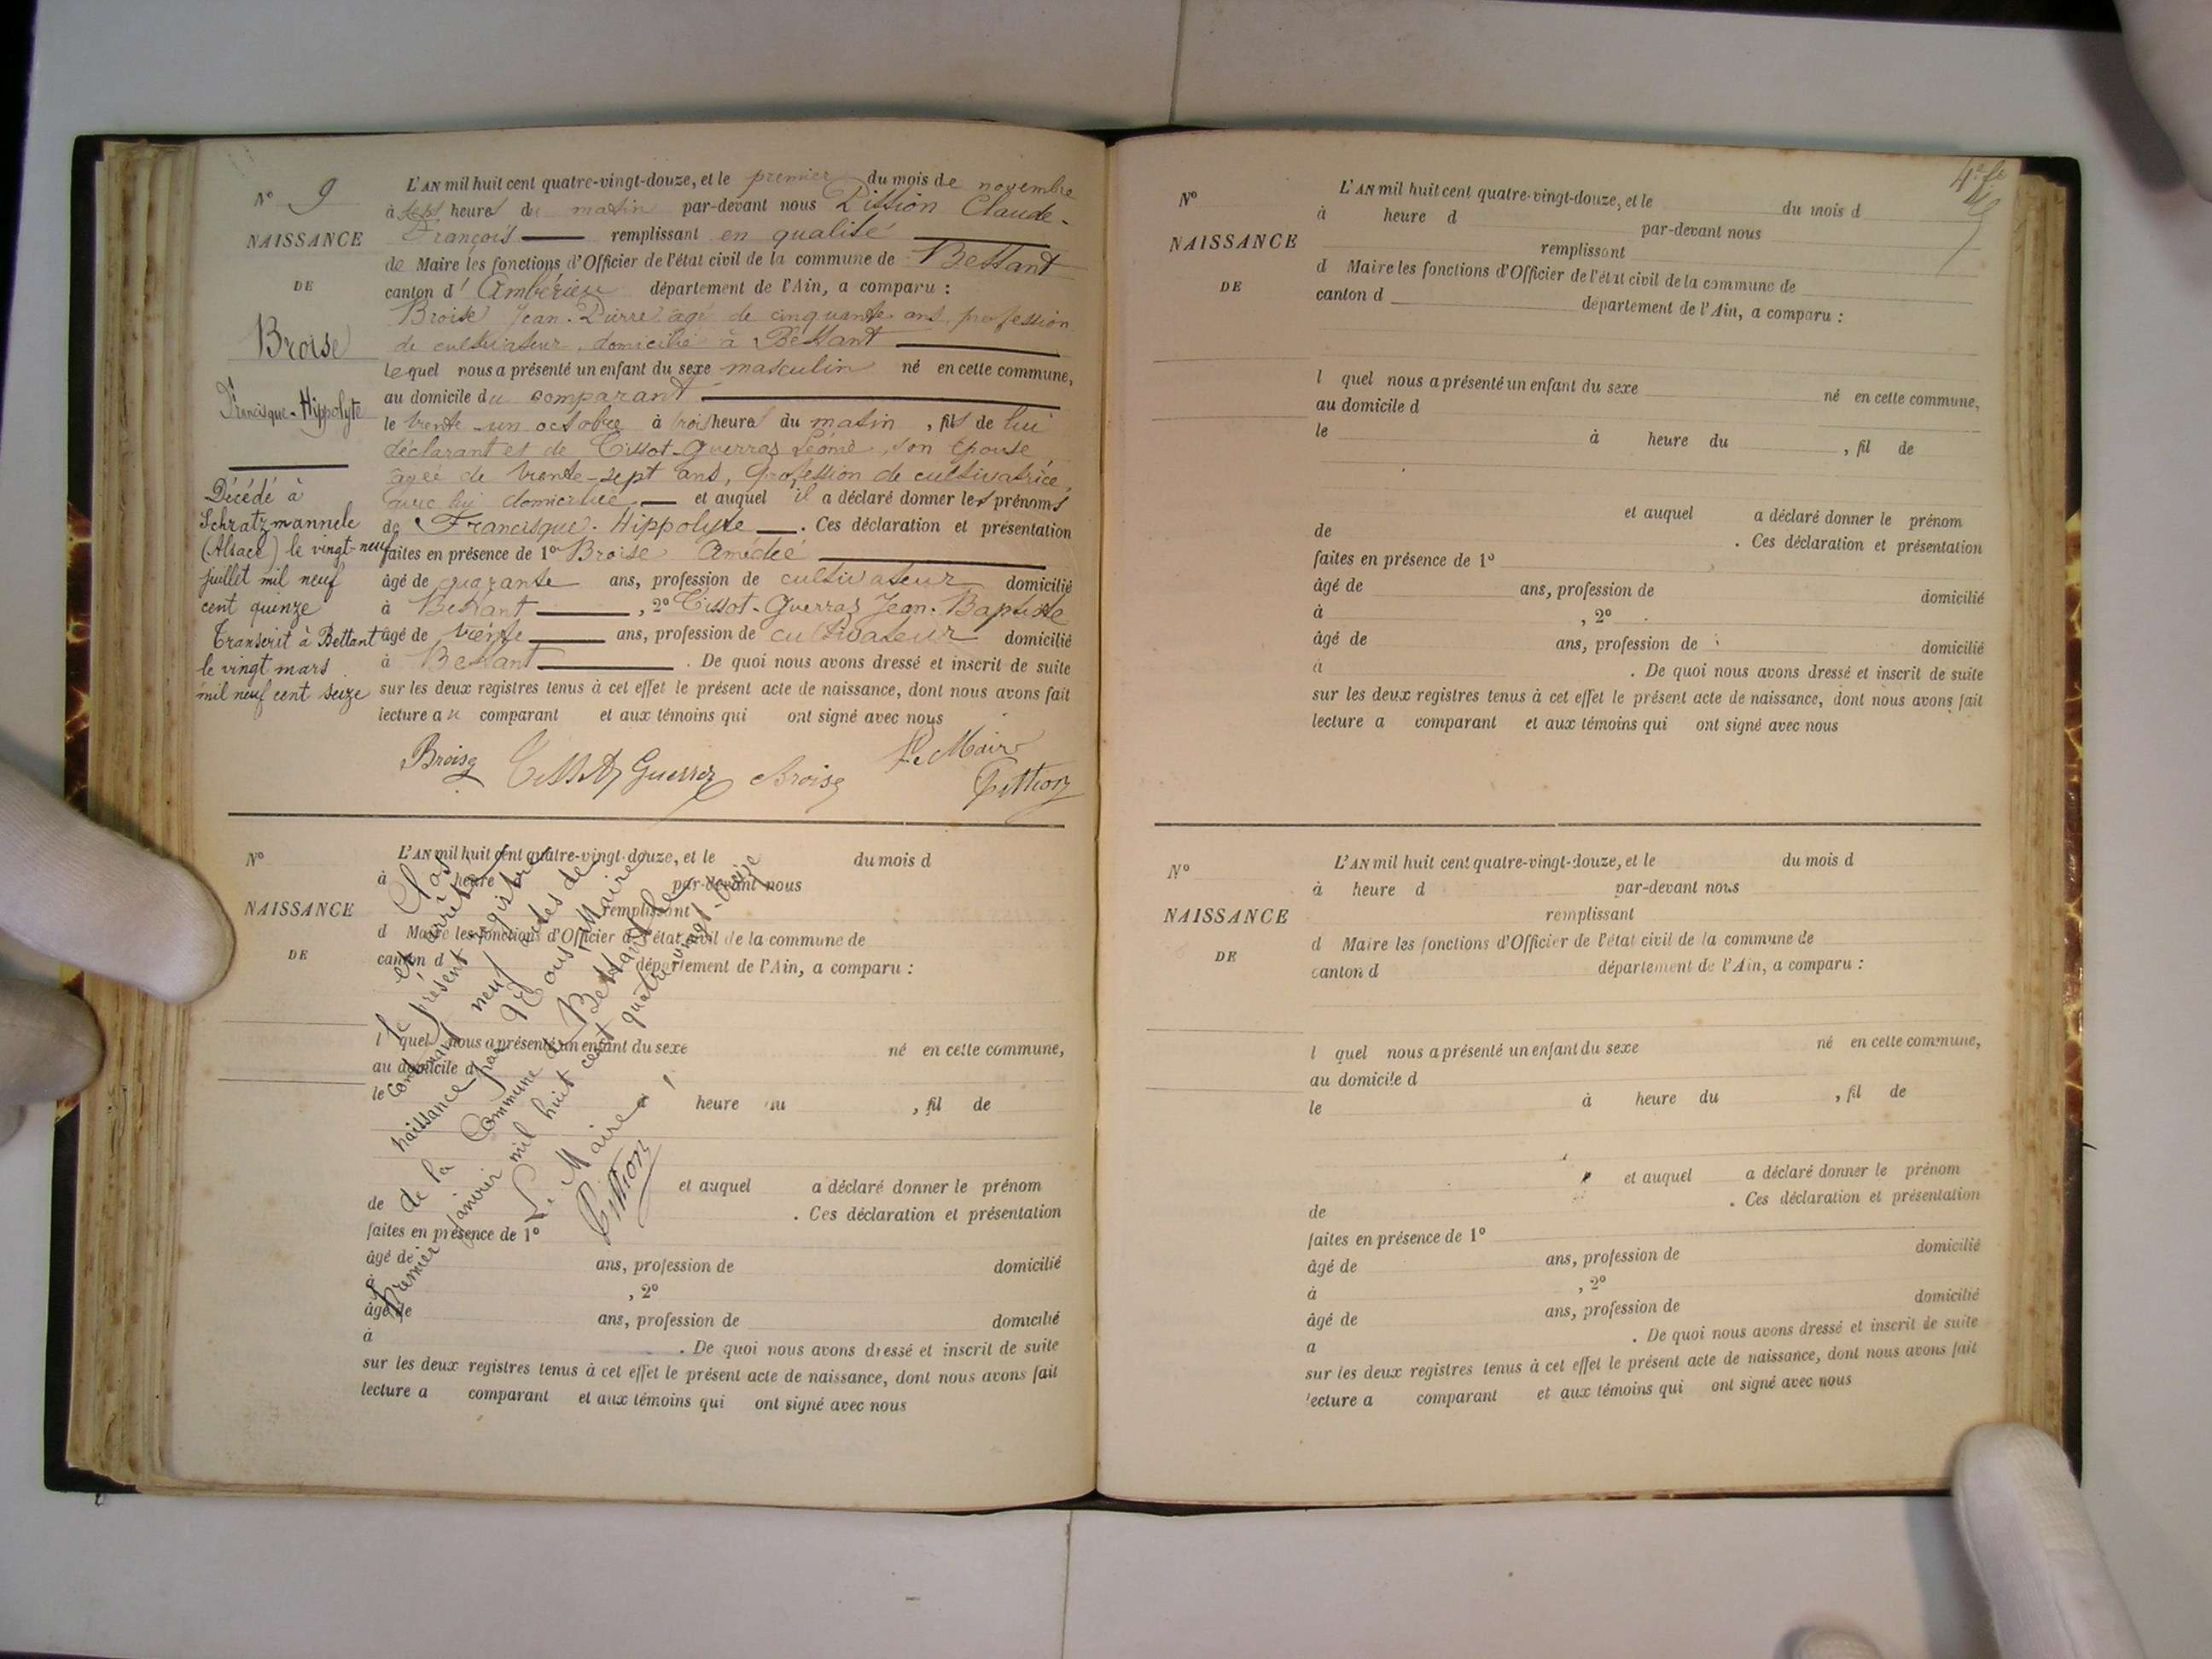 N° 9
NAISSANCE
DE
Broise
Francisque-Hippolyte
Décédé à
Schratzmannele
(Alsace) le vingt-neuf
juillet mil neuf
cent quinze
Transcrit à Bettant
le vingt mars
mil neuf cent seize
L'AN mil huit cent quatre-vingt-douze, et le premier du mois de novembre
à sept heures du matin par-devant nous Pittion Claude-
François remplissant en qualité
de Maire les fonctions d'Officier de l'état civil de la commune de Bettant
canton d'Ambérieu département de l'Ain, a comparu :
Broise Jean-Pierre âgé de cinquante ans profession
de cultivateur, domicilié à Bettant
lequel nous a présenté un enfant du sexe masculin né en cette commune,
au domicile du comparant
le trente-un octobre à trois heures du matin, fils de lui
déclarant et de Tissot-Guerraz Léonie, son épouse,
âgée de trente-sept ans, profession de cultivatrice,
avec lui domiciliée et auquel il a déclaré donner les prénoms
de Francisque-Hippolyte. Ces déclaration et présentation
faites en présence de 1° Broise Amédée
âgé de quarante ans, profession de cultivateur domicilié
à Bettant, 2° Tissot-Guerraz Jean-Baptiste
âgé de trente ans, profession de cultivateur domicilié
à Bettant. De quoi nous avons dressé et inscrit de suite
sur les deux registres tenus à cet effet le présent acte de naissance, dont nous avons fait
lecture au comparant et aux témoins qui ont signé avec nous
Le Maire
Broise Tissot Guerraz Broise Pittion
N°
NAISSANCE
DE
L'AN mil huit cent quatre-vingt-douze, et le du mois d
à heure par-devant nous
remplissant
d Maire les fonctions d'Officier de l'état civil de la commune de
canton d département de l'Ain, a comparu :
l quel nous a présenté un enfant du sexe né en cette commune,
au domicile d
le à heure du , fil de
et auquel a déclaré donner le prénom
de . Ces déclaration et présentation
faites en présence de 1°
âgé de ans, profession de domicilié
à , 2°
âgé de ans, profession de domicilié
à . De quoi nous avons dressé et inscrit de suite
sur les deux registres tenus à cet effet le présent acte de naissance, dont nous avons fait
lecture a comparant et aux témoins qui ont signé avec nous
Clos
et arrêté
le présent registre
contenant neuf actes de
naissance par Nous, Maire
de la Commune de Bettant le
premier janvier mil huit cent quatre-vingt-treize
Le Maire,
Pittion
4e
N°
NAISSANCE
DE
L'AN mil huit cent quatre-vingt-douze, et le du mois d
à heure d par-devant nous
remplissant
d Maire les fonctions d'Officier de l'état civil de la commune de
canton d département de l'Ain, a comparu :
l quel nous a présenté un enfant du sexe né en cette commune,
au domicile d
le à heure du , fil de
et auquel a déclaré donner le prénom
de . Ces déclaration et présentation
faites en présence de 1°
âgé de ans, profession de domicilié
à , 2°
âgé de ans, profession de domicilié
à . De quoi nous avons dressé et inscrit de suite
sur les deux registres tenus à cet effet le présent acte de naissance, dont nous avons fait
lecture a comparant et aux témoins qui ont signé avec nous
N°
NAISSANCE
DE
L'AN mil huit cent quatre-vingt-douze, et le du mois d
à heure d par-devant nous
remplissant
d Maire les fonctions d'Officier de l'état civil de la commune de
canton d département de l'Ain, a comparu :
l quel nous a présenté un enfant du sexe né en cette commune,
au domicile d
le à heure du , fil de
et auquel a déclaré donner le prénom
de . Ces déclaration et présentation
faites en présence de 1°
âgé de ans, profession de domicilié
à , 2°
âgé de ans, profession de domicilié
a . De quoi nous avons dressé et inscrit de suite
sur les deux registres tenus à cet effet le présent acte de naissance, dont nous avons fait
lecture a comparant et aux témoins qui ont signé avec nous